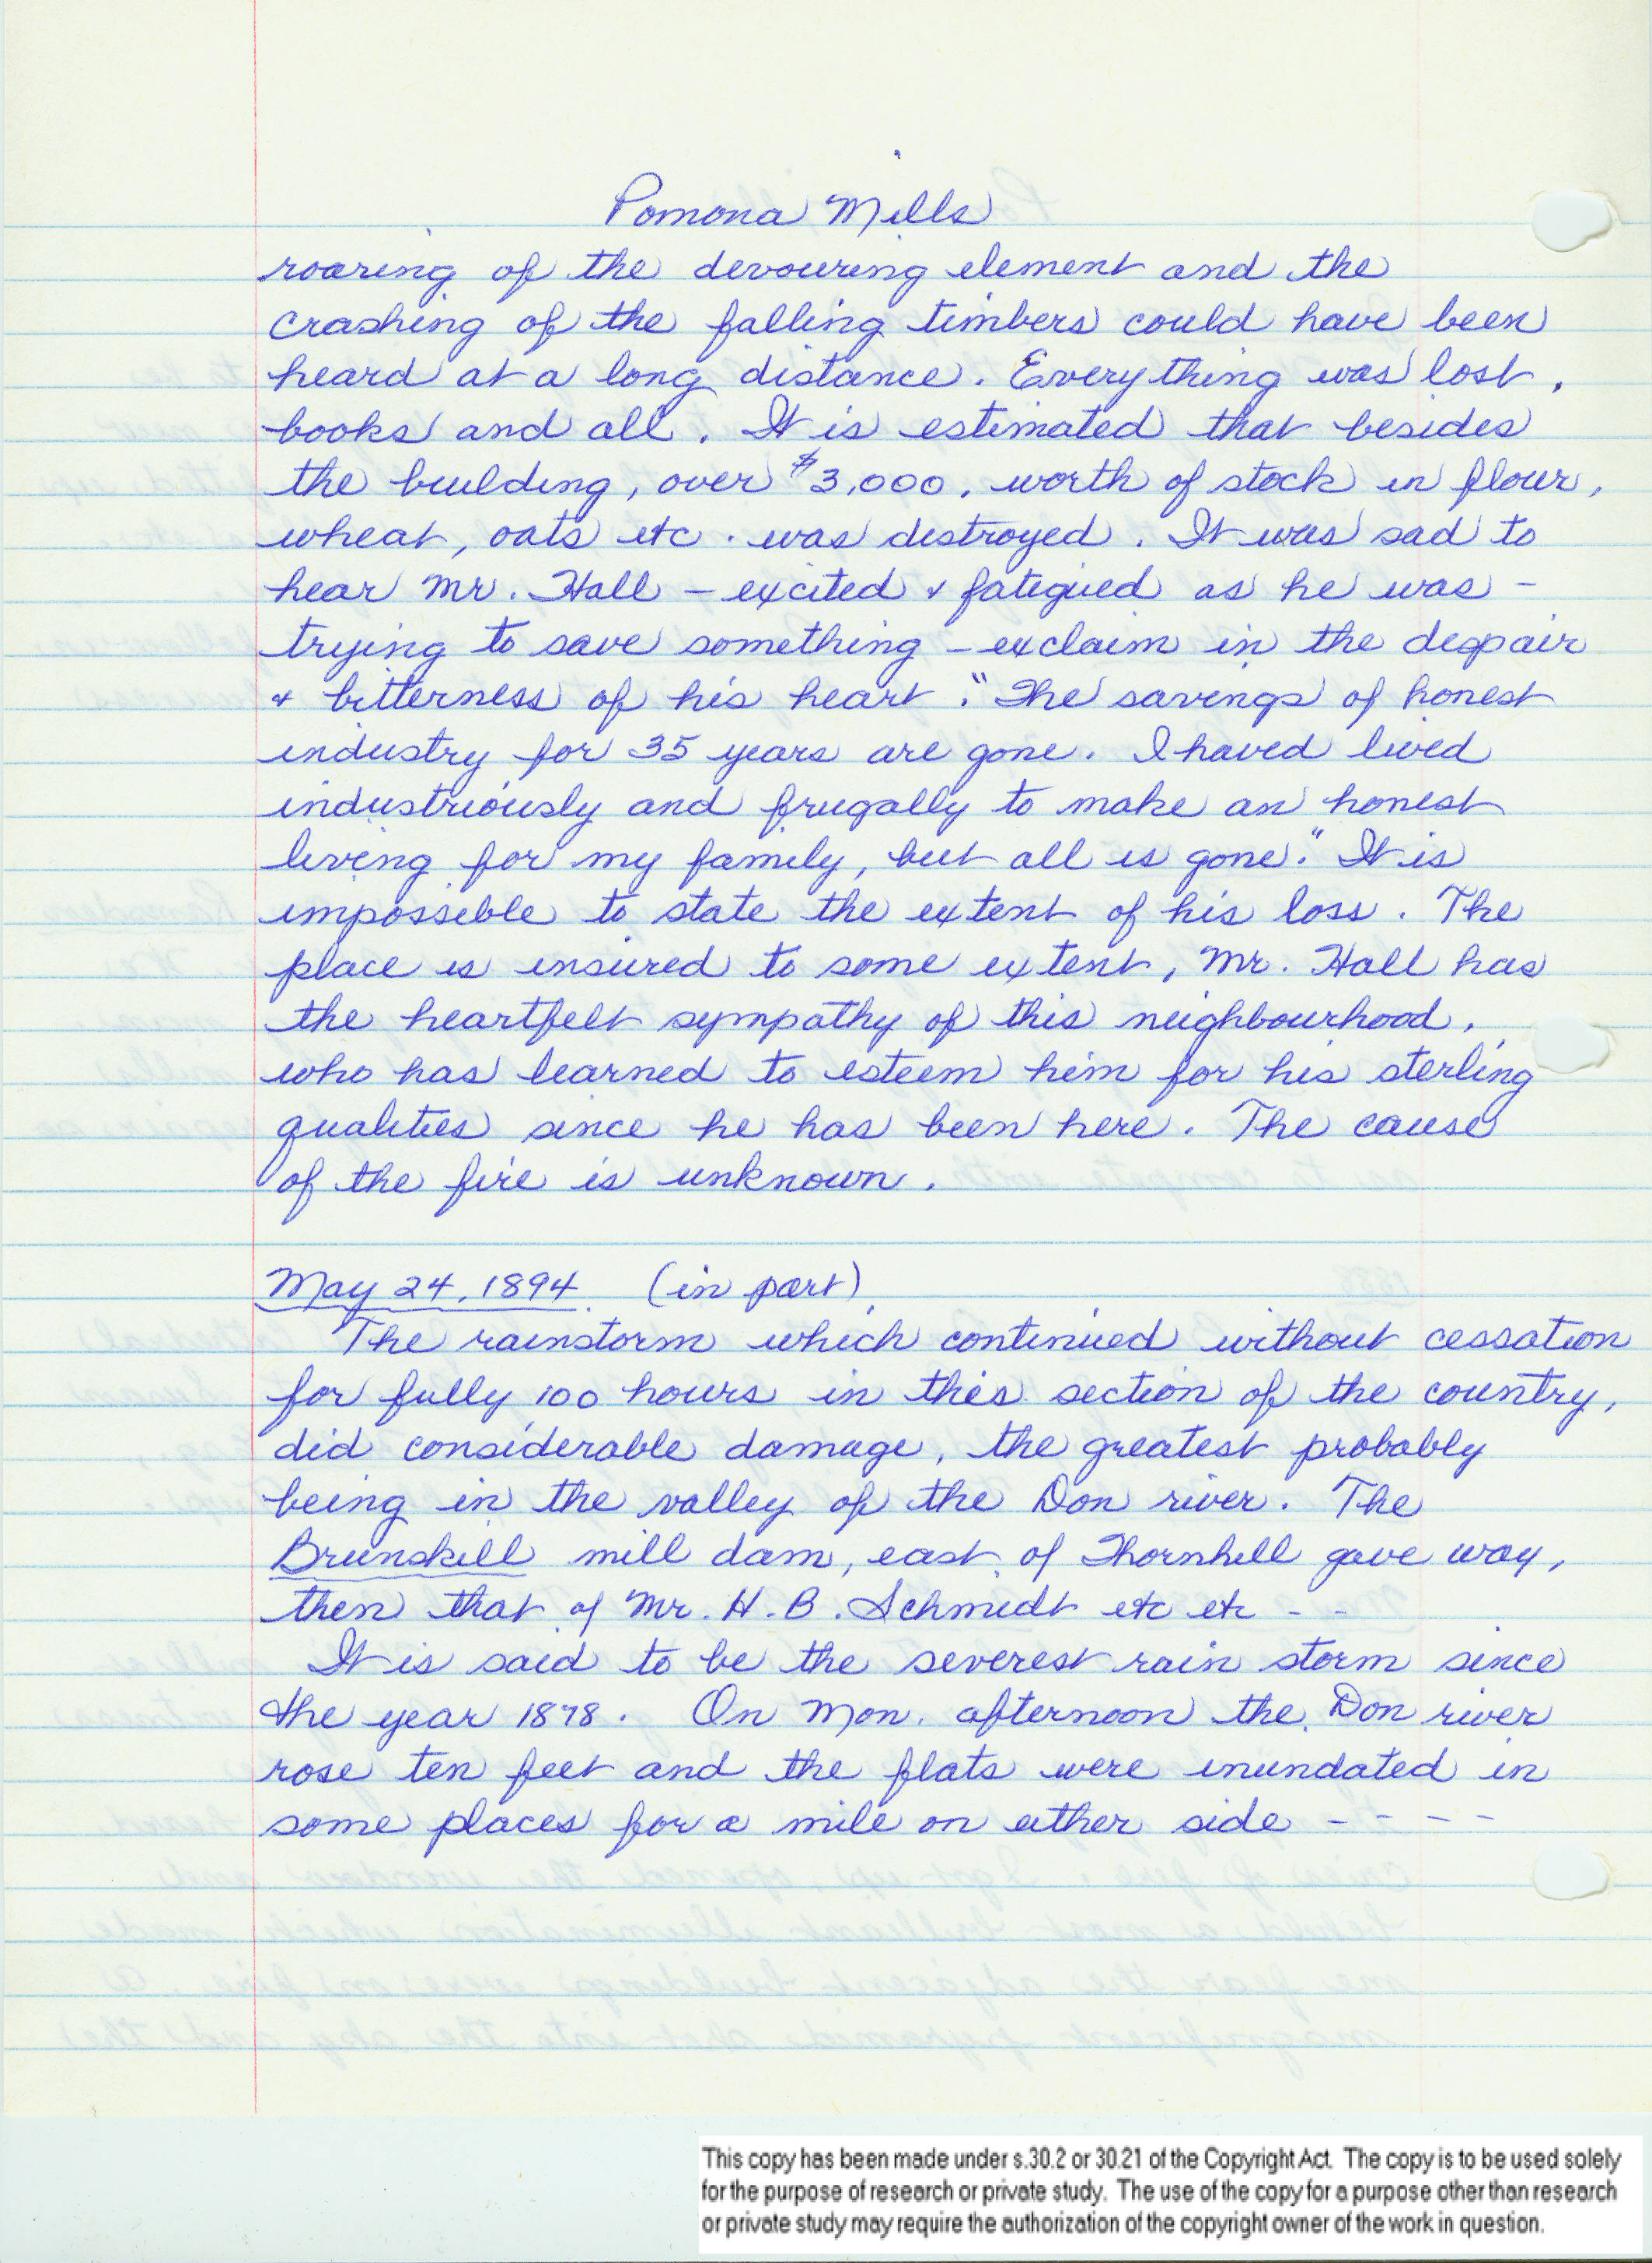 Pomona Mills
roaring of the devouring element and the
crashing of the falling timbers could have been
heard at a long distance. Everything was lost,
books and all. It is estimated that besides
the building, over $3,000. worth of stock in flour,
wheat, oats etc. was destroyed. It was sad to
hear Mr. Hall - excited & fatigued as he was -
trying to save something - exclaim in the despair
& bitterness of his heart. "The savings of honest
industry for 35 years are gone. I haved lived
industriously and frugally to make an honest
living for my family, but all is gone." It is
impossible to state the extent of his loss. The
place is insured to some extent, Mr. Hall has
the heartfelt sympathy of this neighbourhood,
who has learned to esteem him for his sterling
qualities since he has been here. The cause
of the fire is unknown.
May 24, 1894. (in part)
The rainstorm which continued without cessation
for fully 100 hours in this section of the country,
did considerable damage, the greatest probably
being in the valley of the Don river. The
Brunskill mill dam, east of Thornhill gave way,
then that of Mr. H. B. Schmidt etc etc - -
It is said to be the severest rain storm since
the year 1878. On Mon. afternoon the Don river
rose ten feet and the flats were inundated in
some places for a mile on either side - - - -
This copy has been made under s.30.2 or 30.21 of the Copyright Act. The copy is to be used solely
for the purpose of research or private study. The use of the copy for a purpose other than research
or private study may require the authorization of the copyright owner of the work in question.